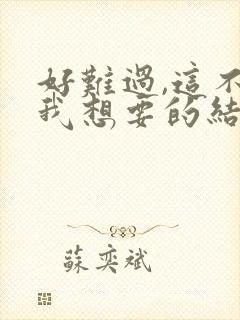 好難過,這不
我想要的結
蘇奕斌